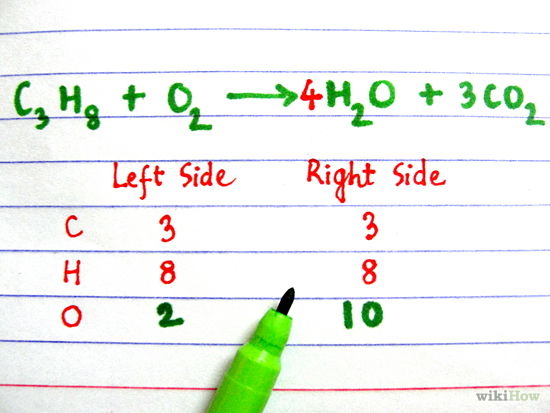 C₃H₈ + O₂ → 4H₂O + 3CO₂
Left Side Right Side
C 3 3
H 8 8
O 2 10
wikiHow